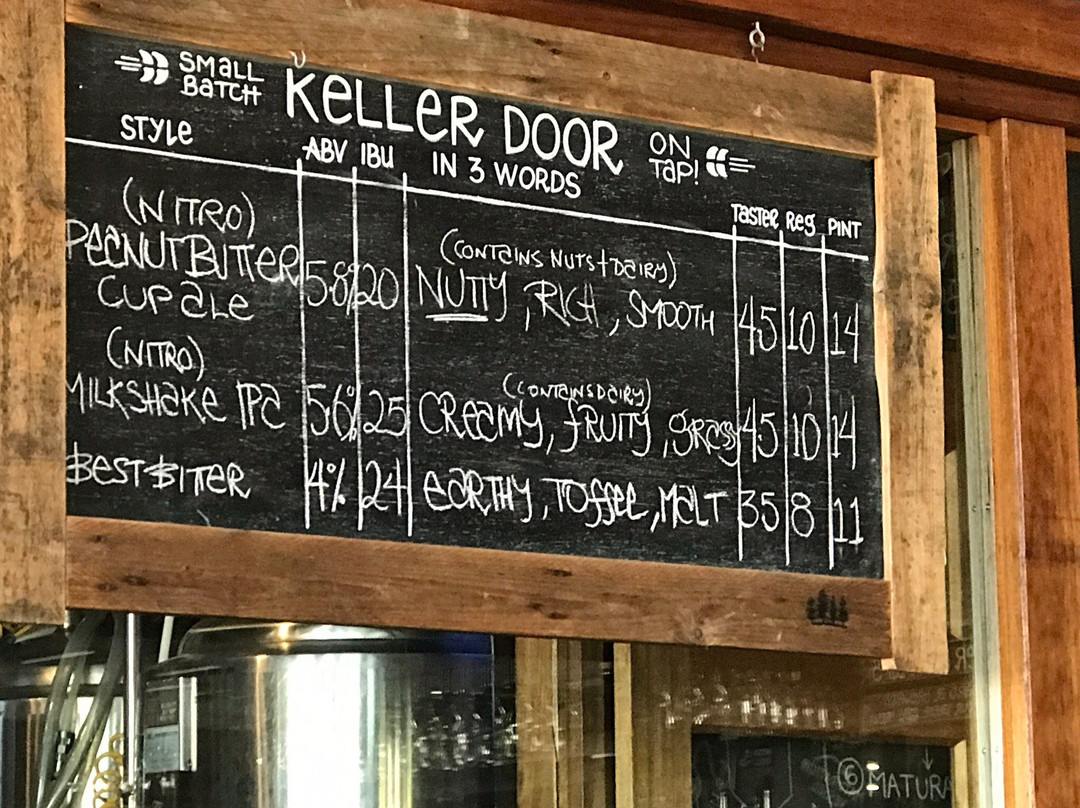 SMALL BATCH KELLER DOOR ON TAP!
STYLE ABV IBU IN 3 WORDS TASTER Reg PINT
(NITRO) (CONTAINS NUTS + DAIRY)
PEANUTBUTTER CUP ALE 58% 20 NUTTY, RICH, SMOOTH 45 10 14
(NITRO) (CONTAINS DAIRY)
MILKSHAKE IPA 56% 25 CREAMY, FRUITY, grassy 45 10 14
BEST BITTER 4% 24 EARTHY, TOFFEE, MALT 35 8 11
6 MATURA